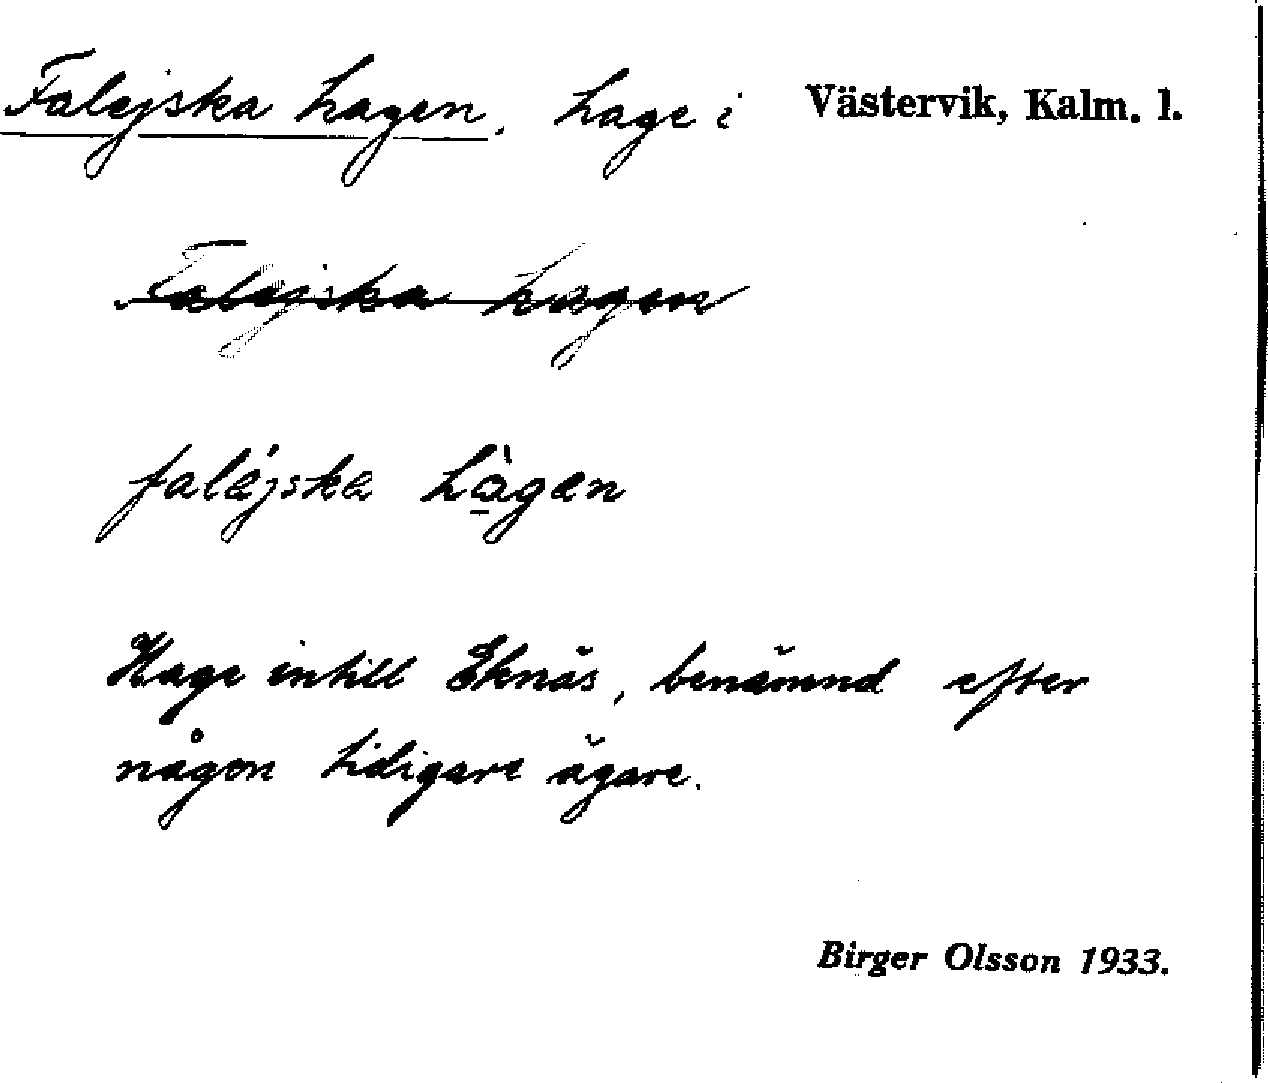 Falejska hagen, hage i Västervik, Kalm. l.
Falejska hagen
faläjska hàgän
Hage intill Eknäs, benämnd efter
någon tidigare ägare.
Birger Olsson 1933.